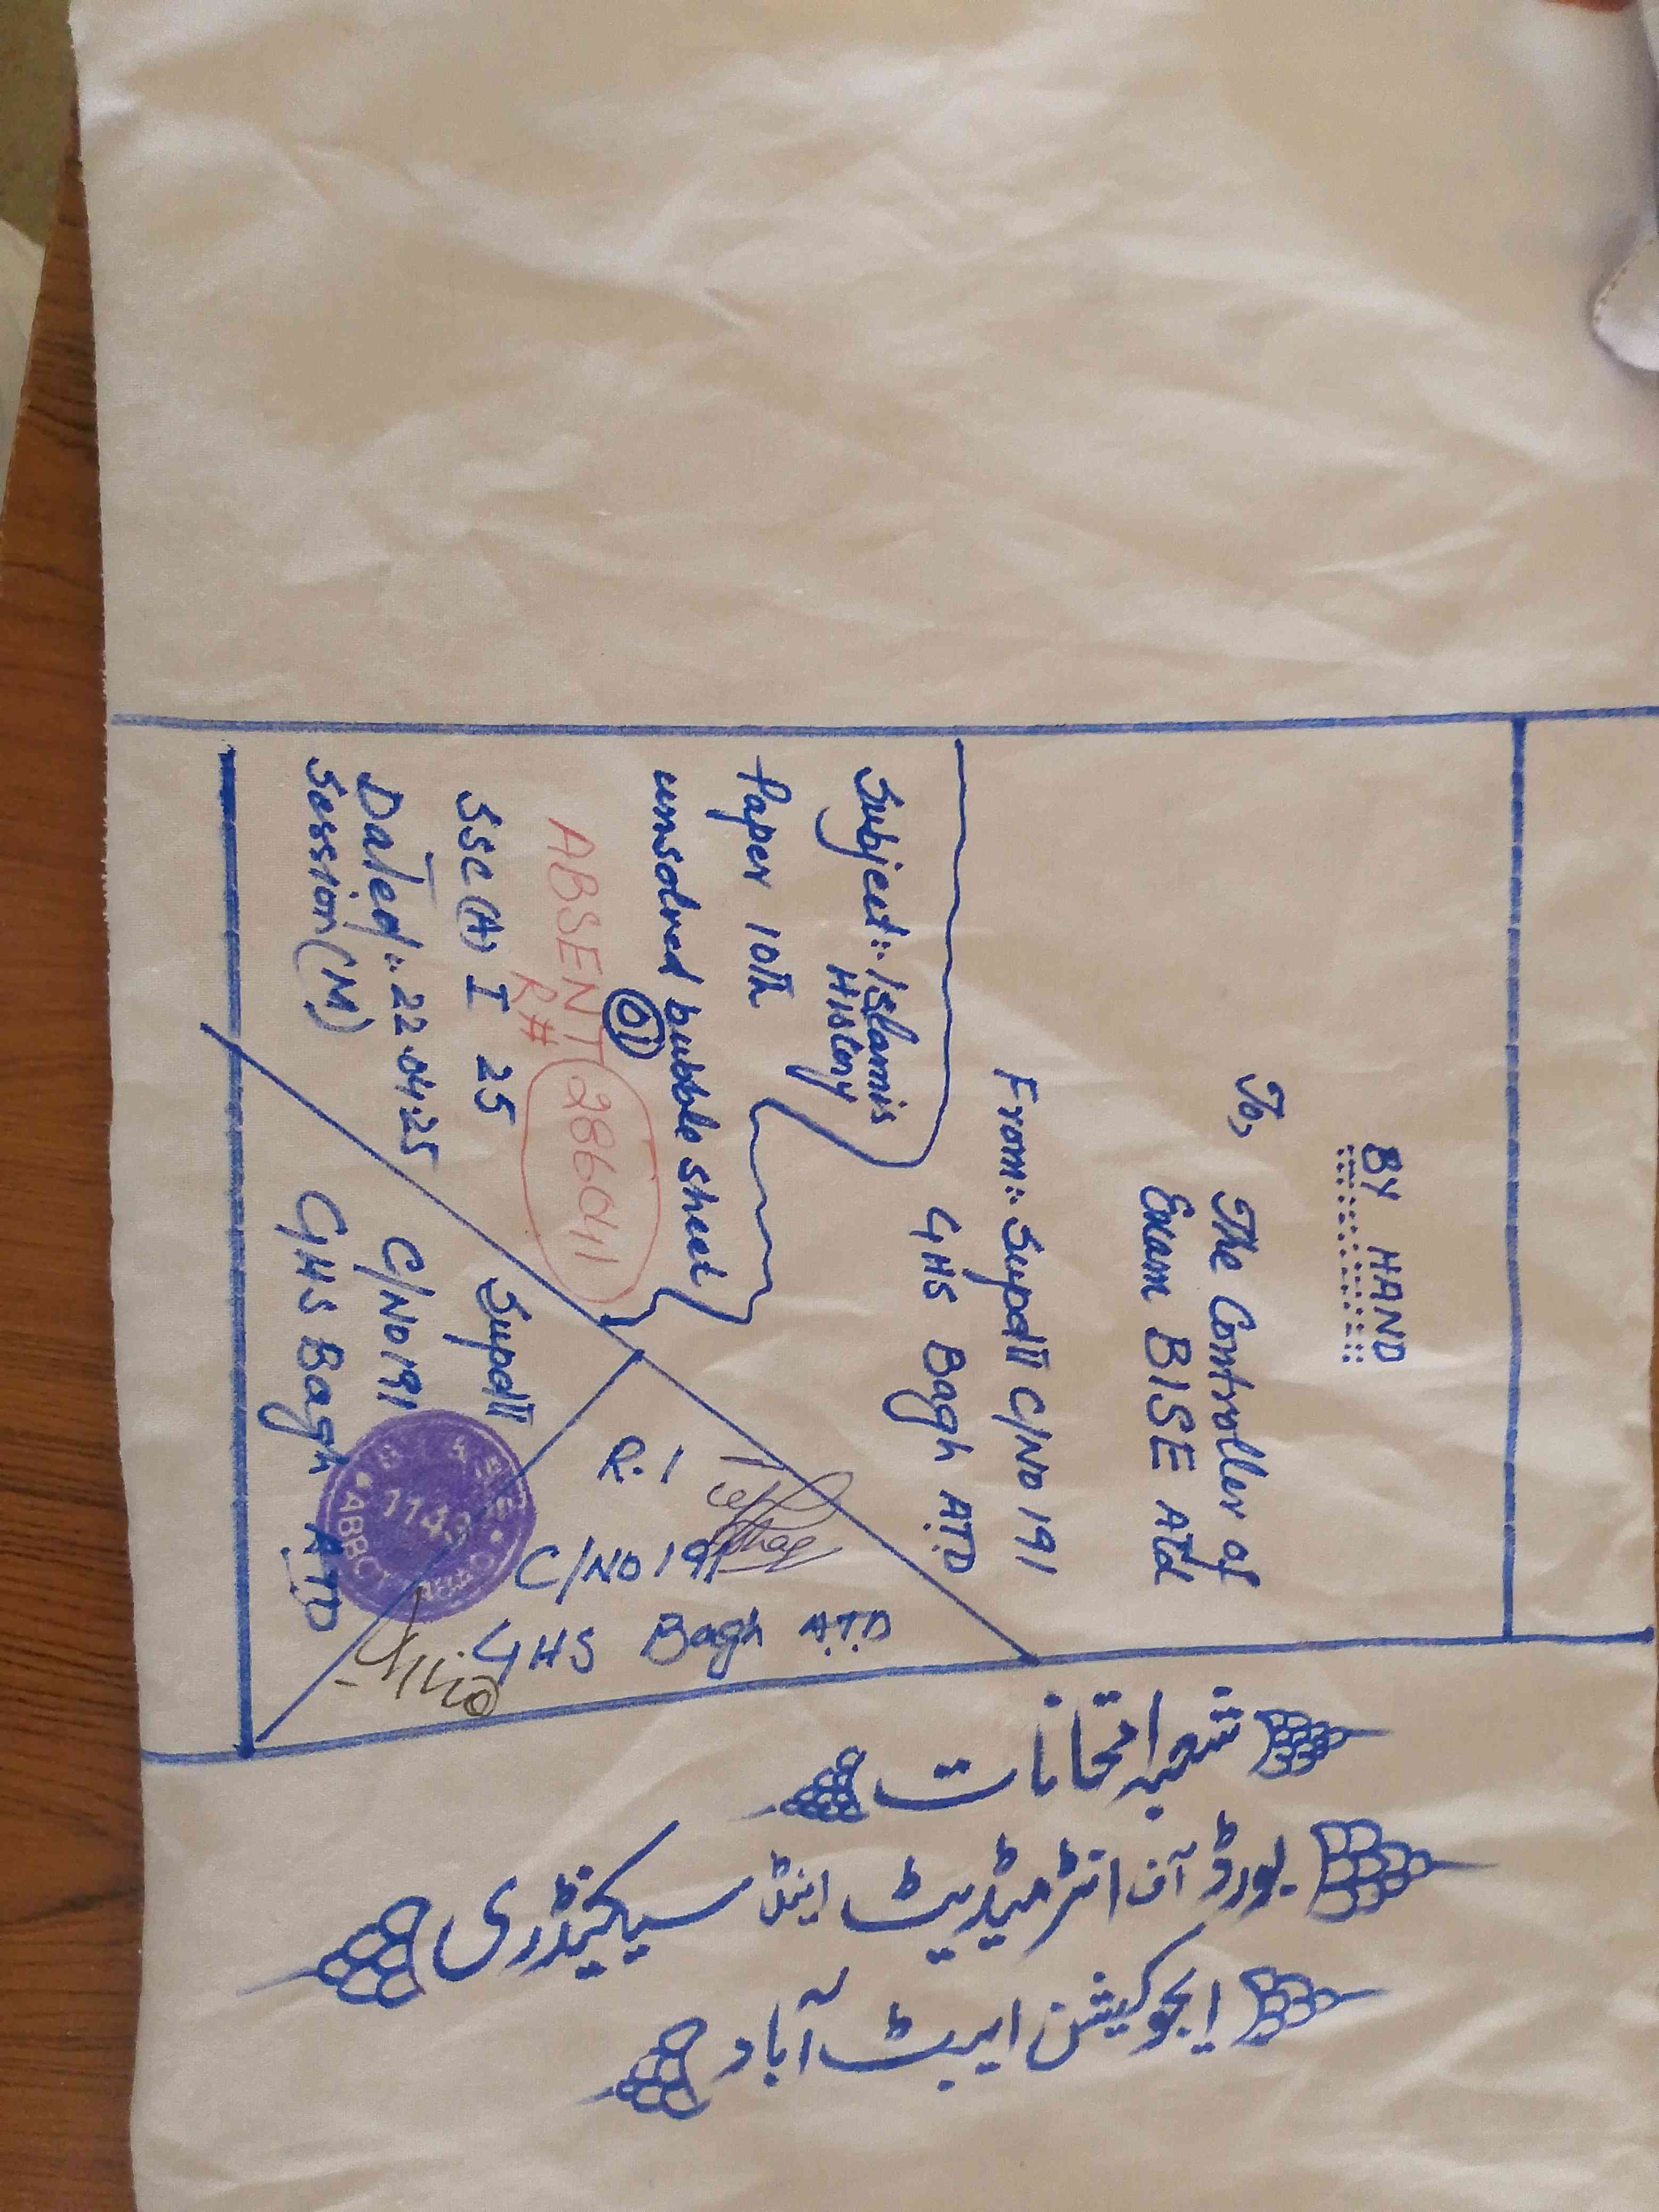 شعبہ امتحانات
بورڈ آف انٹرمیڈیٹ اینڈ سیکنڈری
ایجوکیشن ایبٹ آباد
BY HAND
To, The Controller of
Exam BISE ATd
From:: Supdtt C/No 191
GHS Bagh ATD
Subject:: Islamis
History
Paper 10th
unsolved bubble sheet
01
ABSENT 286041
R#
SSC (A) I 25
Dated:: 22.04.25
Session (M)
R.I
C/NO 191
GHS Bagh A.T.D
Supdtt
C/No 191
GHS Bagh ATD